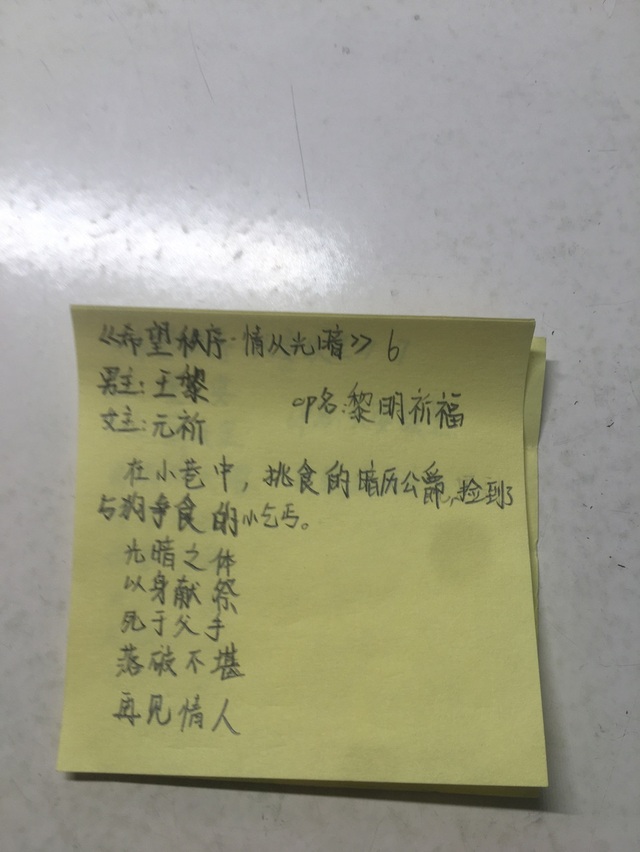 《希望秩序·情从光暗》6
男主:王黎
cp名:黎明祈福
女主:元祈
在小巷中,挑食的暗历公爵,捡到了
与狗争食的小乞丐。
光暗之体
以身献祭
死于父手
落破不堪
再见情人